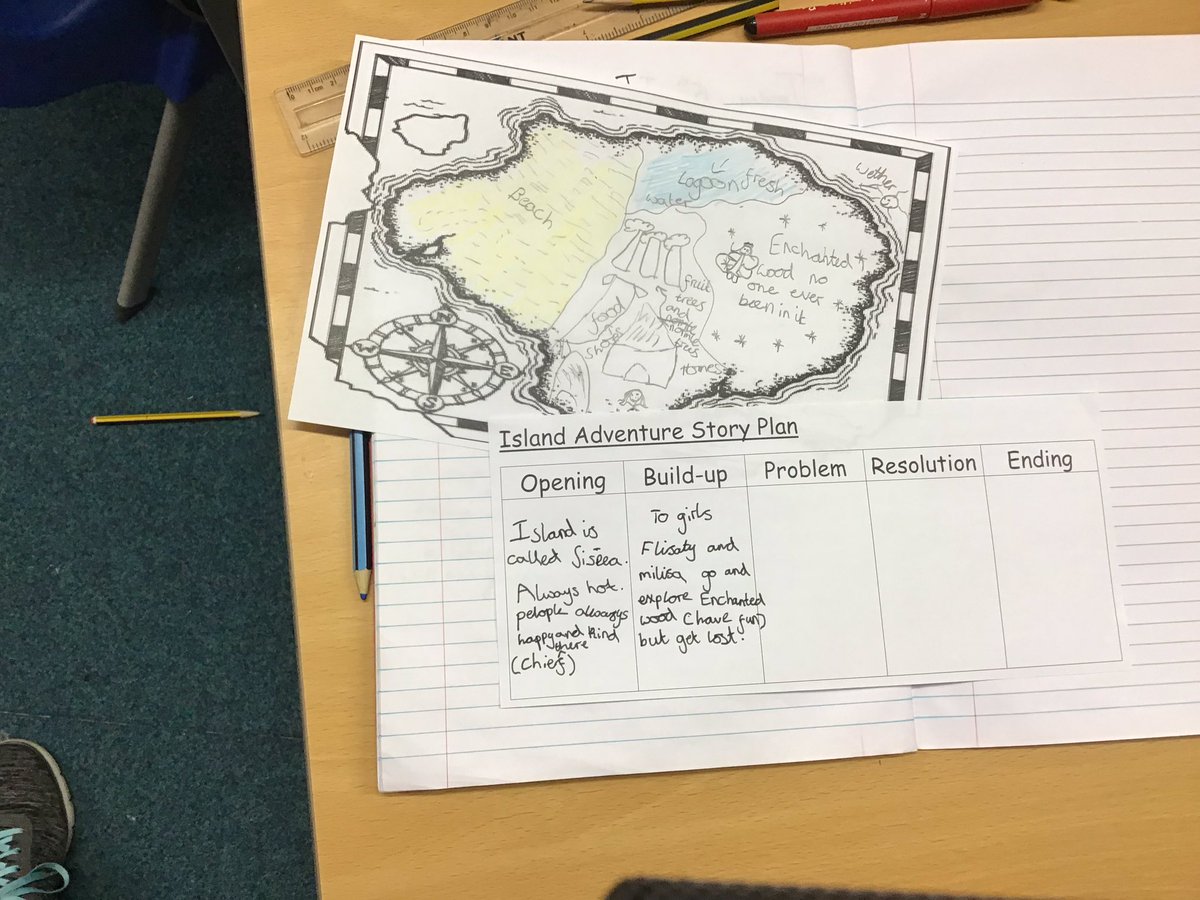 Beach
Lagoon fresh
water
Enchanted
wood no
one ever
been in it
fruit
trees
and
food
shops
Homes
N
E
S
Island Adventure Story Plan
Opening
Build-up
Problem
Resolution
Ending
Island is
called
Always hot.
pelople always
happy and kind
there
(chief)
To girls
Flisaty and
milisa go and
explore Enchanted
wood (have fun)
but get lost!